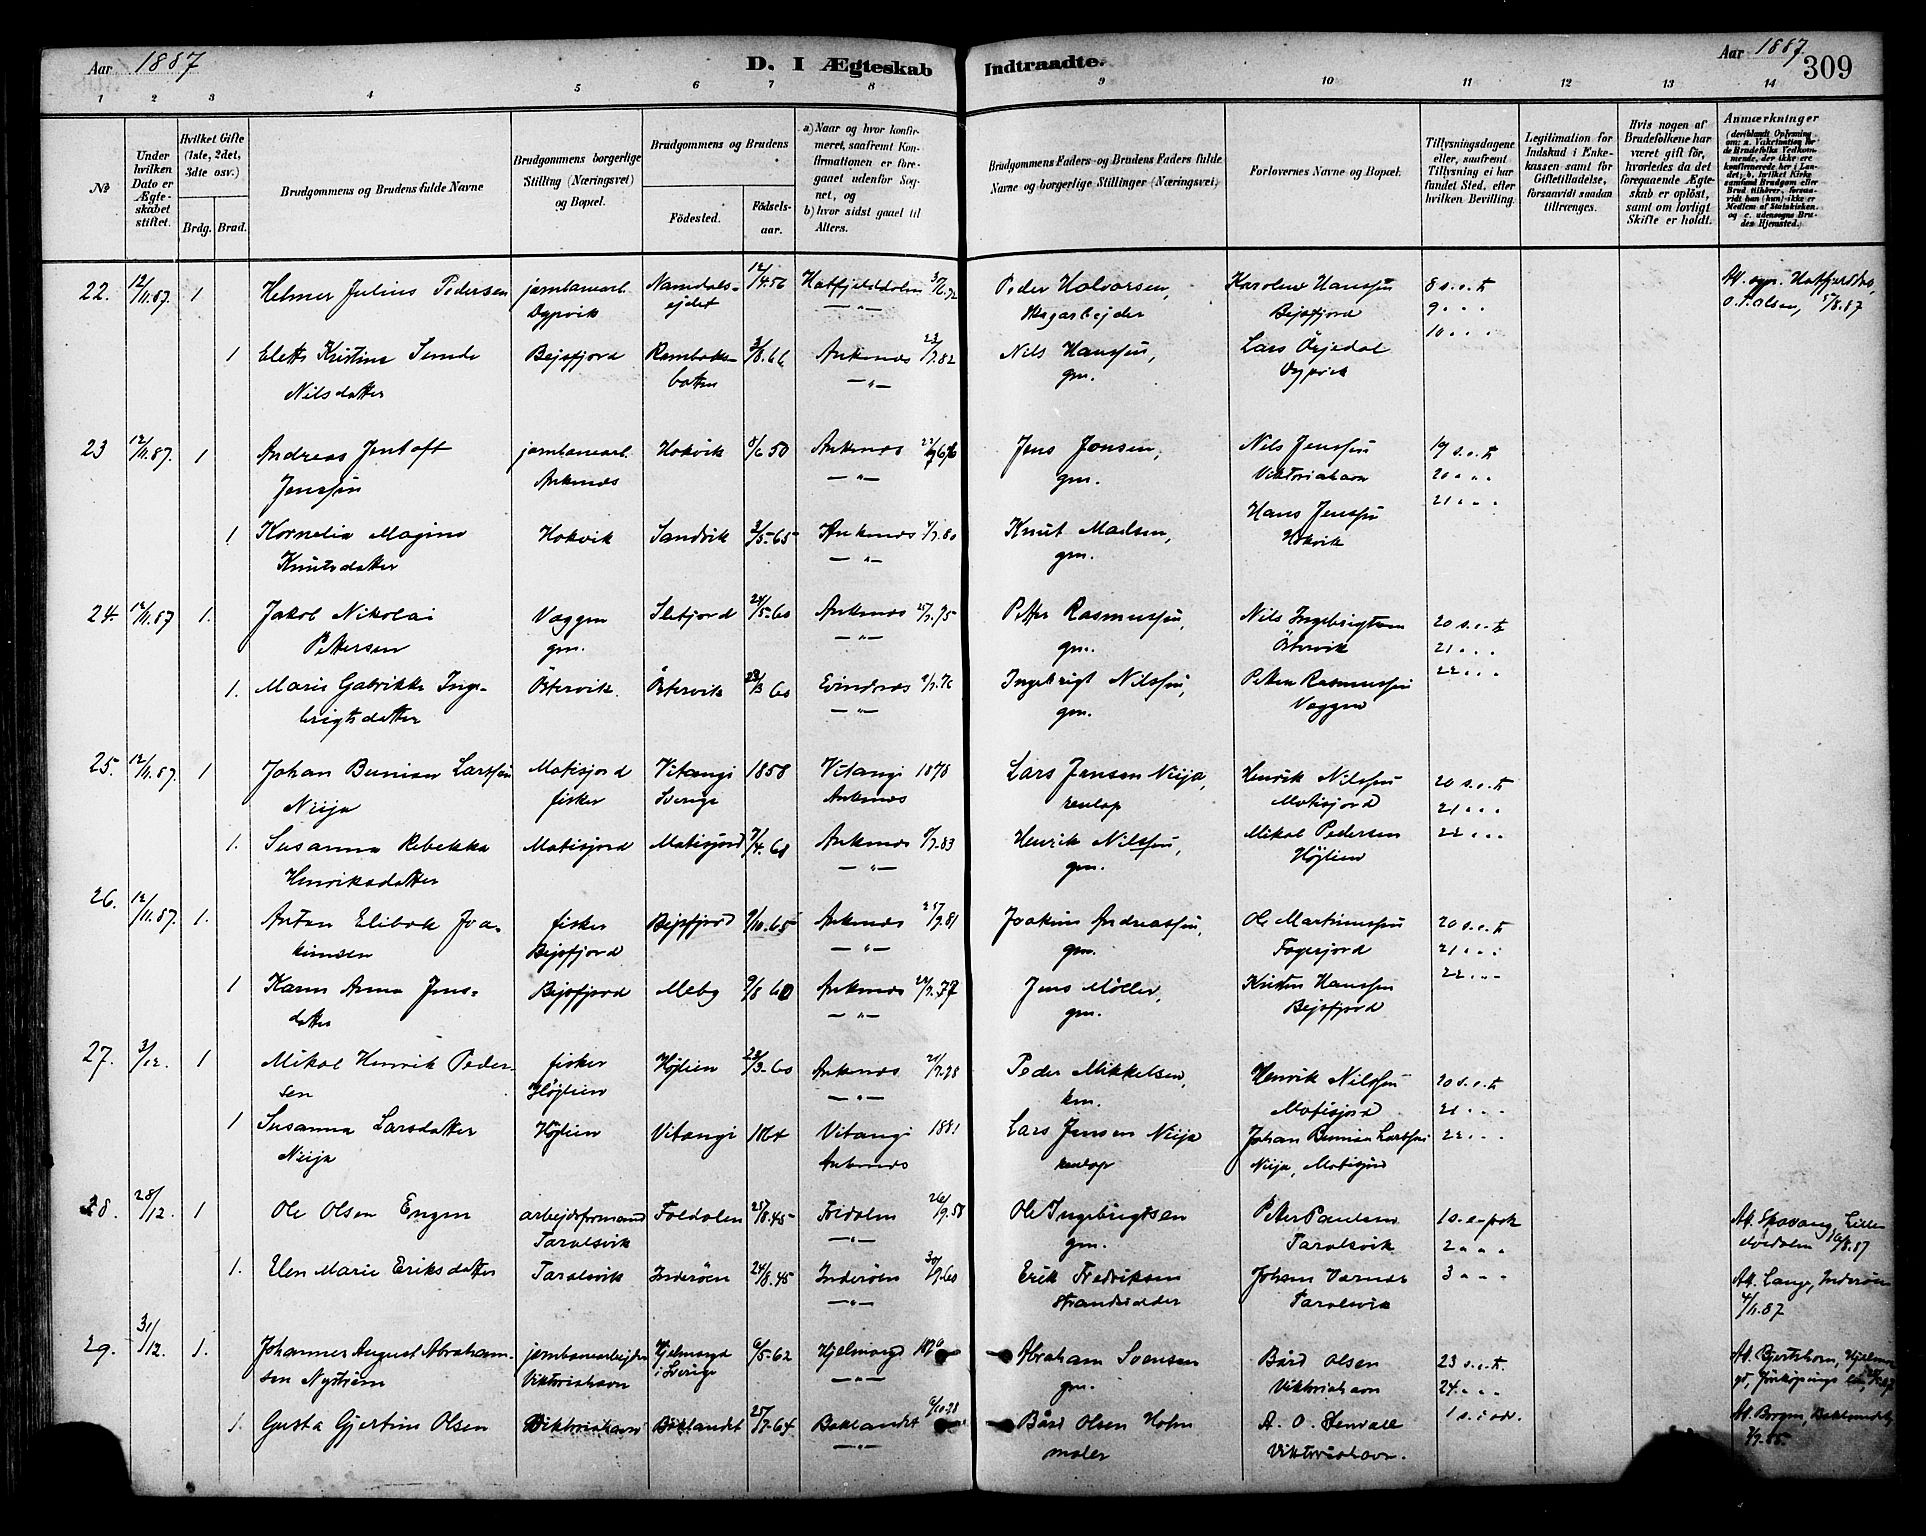 Aar 1887
D. I Ægteskab Indtraadte.
Aar 1887.
309
1 2 3 4 5 6 7 8 9 10 11 12 13 14
No
Under hvilken Dato er Ægteskabet stiftet.
Hvilket Gifte (1ste, 2det, 3die osv.)
Brdg. Brud.
Brudgommens og Brudens fulde Navne
Brudgommens borgerlige Stilling (Næringsvei) og Bopæl.
Brudgommens og Brudens
Födested.
Födselsaar.
a) Naar og hvor konfirmeret, saafremt Konfirmationen er foregaaet udenfor Sognet, og
b) hvor sidst gaaet til Alters.
Brudgommens Faders og Brudens Faders fulde Navne og borgerlige Stillinger (Næringsvei)
Forlovernes Navne og Bopæl.
Tillysningsdagene eller, saafremt Tillysning ei har fundet Sted, efter hvilken Bevilling.
Legitimation for Indskud i Enkekassen samt for Giftetilladelse, forsaavidt saadan tiltrænges.
Hvis nogen af Brudefolkene har været gift för, hvorledes da det foregaaende Ægteskab er oplöst, samt om lovligt Skifte er holdt.
Anmærkninger
22. 12/11.87. 1 Helmer Julius Pedersen jernbanearb. Namdals- 12/4.56 Hatfjelddalen Peder Halvorsen, Karolius Hanssen 8 s.e.tr.
Dypvik ejdet Skogarbejder Bejsfjord 9 " "
O. T. Olsen, 5/8.87
1 Eletta Kristine Nilsdatter Bejsfjord Rombaksbotten 3/8.66 Ankenæs 23/7.82 Nils Hanssen, gm. Lars Dypvik 10 " "
23 12/11.87. 1 Andreas Jentoft Jenssen jernbanearb. Ankenæs Hokvik 5/6 50 Ankenæs Jens Jonsen, gm. Nils Jenssen Viktoriahavn 19 s.e.tr.
20 " "
21 " "
1 Kornelia Magina Knutsdatter Hokvik Sandvik 3/5-65 Ankenæs 4/7.80 Knut Madsen, gm. Hans Jenssen Hokvik
24. 12/11.87 1. Jakob Nikolai Pettersen Vaggen gm. Sletjord 24/5-60 Ankenæs 25/7.75 Petter Rasmussen, gm. Nils Ingebrigtsen Östervik 20 s.e.tr.
21 " "
22 " "
1. Marie Gabrikke Ingebrigtsdatter Östervik. Östervik 23/3 60 Evindnæs 2/7.76 Ingebrigt Nilssen, gm. Petter Rasmussen Vaggen
25. 12/11.87. 1 Johan Bunian Larssen Niija Matisjord fisker Vitangi Sverige 1858 Vitangi 1878 Ankenæs Lars Jensen Niija, renlap Henrik Nilssen Matisjord 20 s.e.tr.
21 " "
22 " "
1. Susanna Rebekka Henriksdatter Matisjord Matisjord 7/4.68 Ankenæs 8/7.83 Henrik Nilssen, gm. Mikal Pedersen Højlien
26. 12/11.87. 1. Anton Elibak Joakimsen fisker Bejsfjord Bejsfjord 9/10.65 Ankenæs 25/9.81 Joakim Andreassen, gm. Ole Martinussen Fagerjord 20 s.e.tr.
21 " "
22 " "
1 Karen Anna Jensdatter Bejsfjord Meby 9/8 60 Ankenæs 29/7.77 Jens Møller, gm. Kristen Hanssen Bejsfjord
27. 3/12. 1 Mikal Henrik Pedersen fisker Højlien Højlien 23/3-60 Ankenæs 21/7.78 Peder Mikkelsen, km. Henrik Nilssen Matisjord 20 s.e.tr.
21 " "
22 " "
1 Susanna Larsdatter Niija Højlien Vitangi 1864 Vitangi 1881 Ankenæs Lars Jensen Niija renlap Johan Bunian Larssen Niija, Matisjord
28. 28/12. 1 Ole Olsen Engen arbejdsformand Taraldsvik Foldalen 25/8.45 26/9.58 Ole Ingebrigtsen gm. Peter Paulsen Taralsvik 1 s.e.
2 " "
3 " "
1. Elen Marie Eriksdatter Taralsvik Inderøen 24/8.45 Inderøen 30/9.60 Erik Fredriksen strandsidder Johan Varnes Taralsvik
At. Lange, Inderøen 4/11.87
29. 31/12. 1. Johannes August Abrahamsen Nyström jernbanearbejder Viktoriahavn Hjelmaryd i Sverige 6/5-62 Hjelmaryd Abraham Svensen gm. Bård Olsen Viktoriahavn 23 s.e.tr.
24 " "
1 s. i adv.
1. Gusta Gjertine Olsen Viktoriahavn Baklandet 25/7-64 Baklandet 6/10.78 Bård Olsen Holm maler A. O. Stenvall Viktoriahavn.